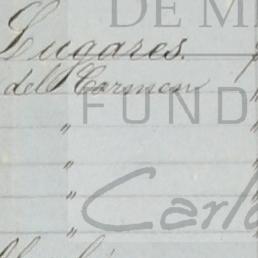 DE M
Lugares.
del Carmen
FUND
"
"
"
"
Carlo